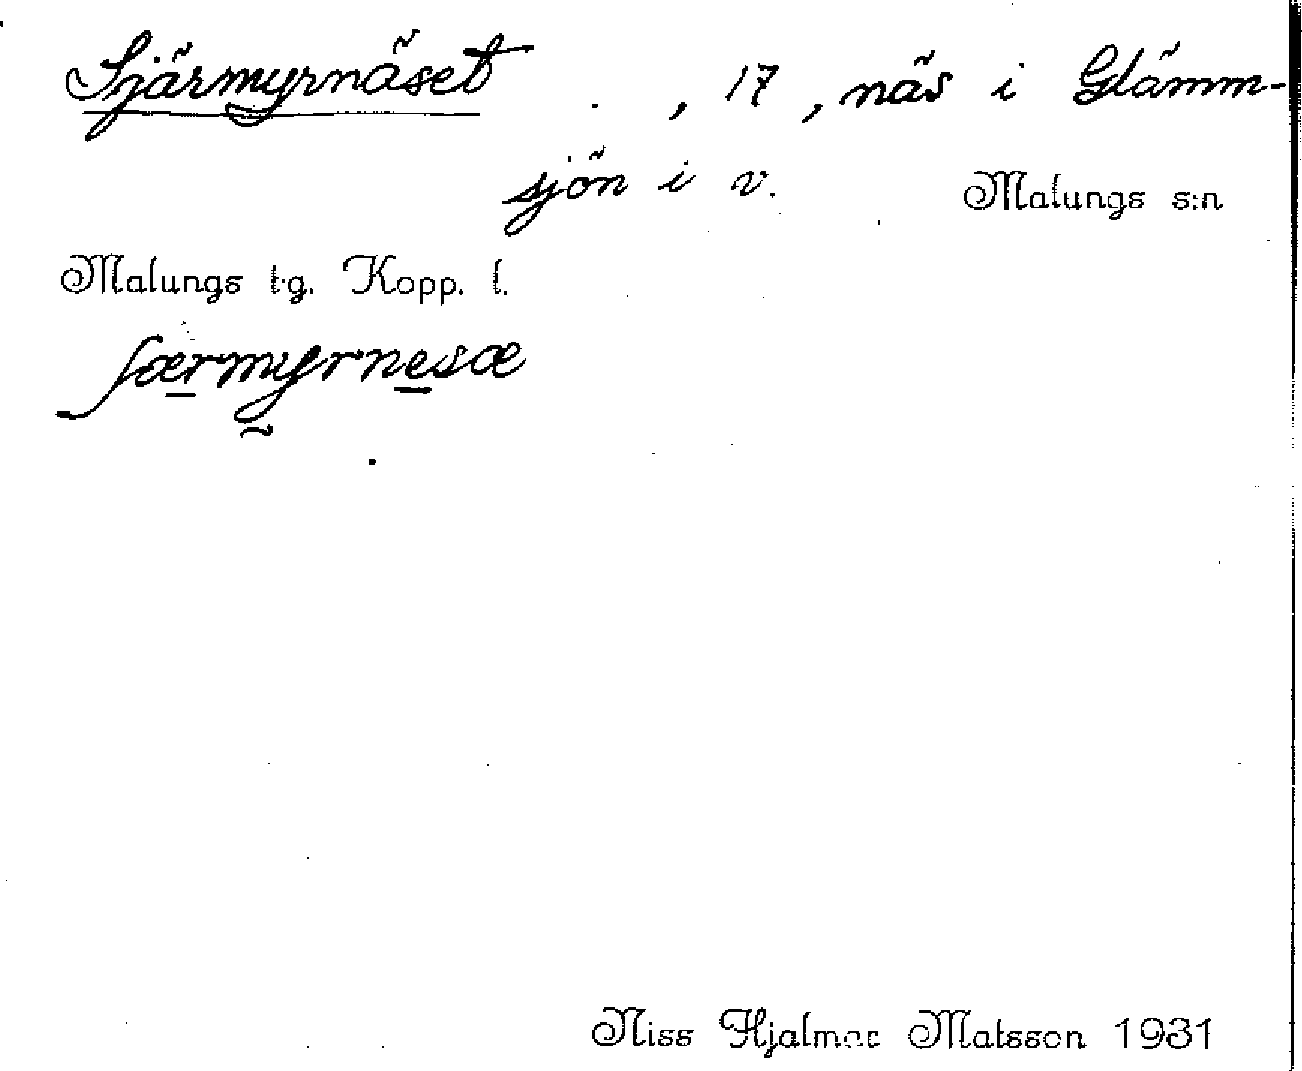 Sjärmyrnäset , 17, näs i Glämm-
sjön i v. Malungs s:n
Malungs tg. Kopp. l.
ʃærmyrnesæ
Niss Hjalmar Matsson 1931